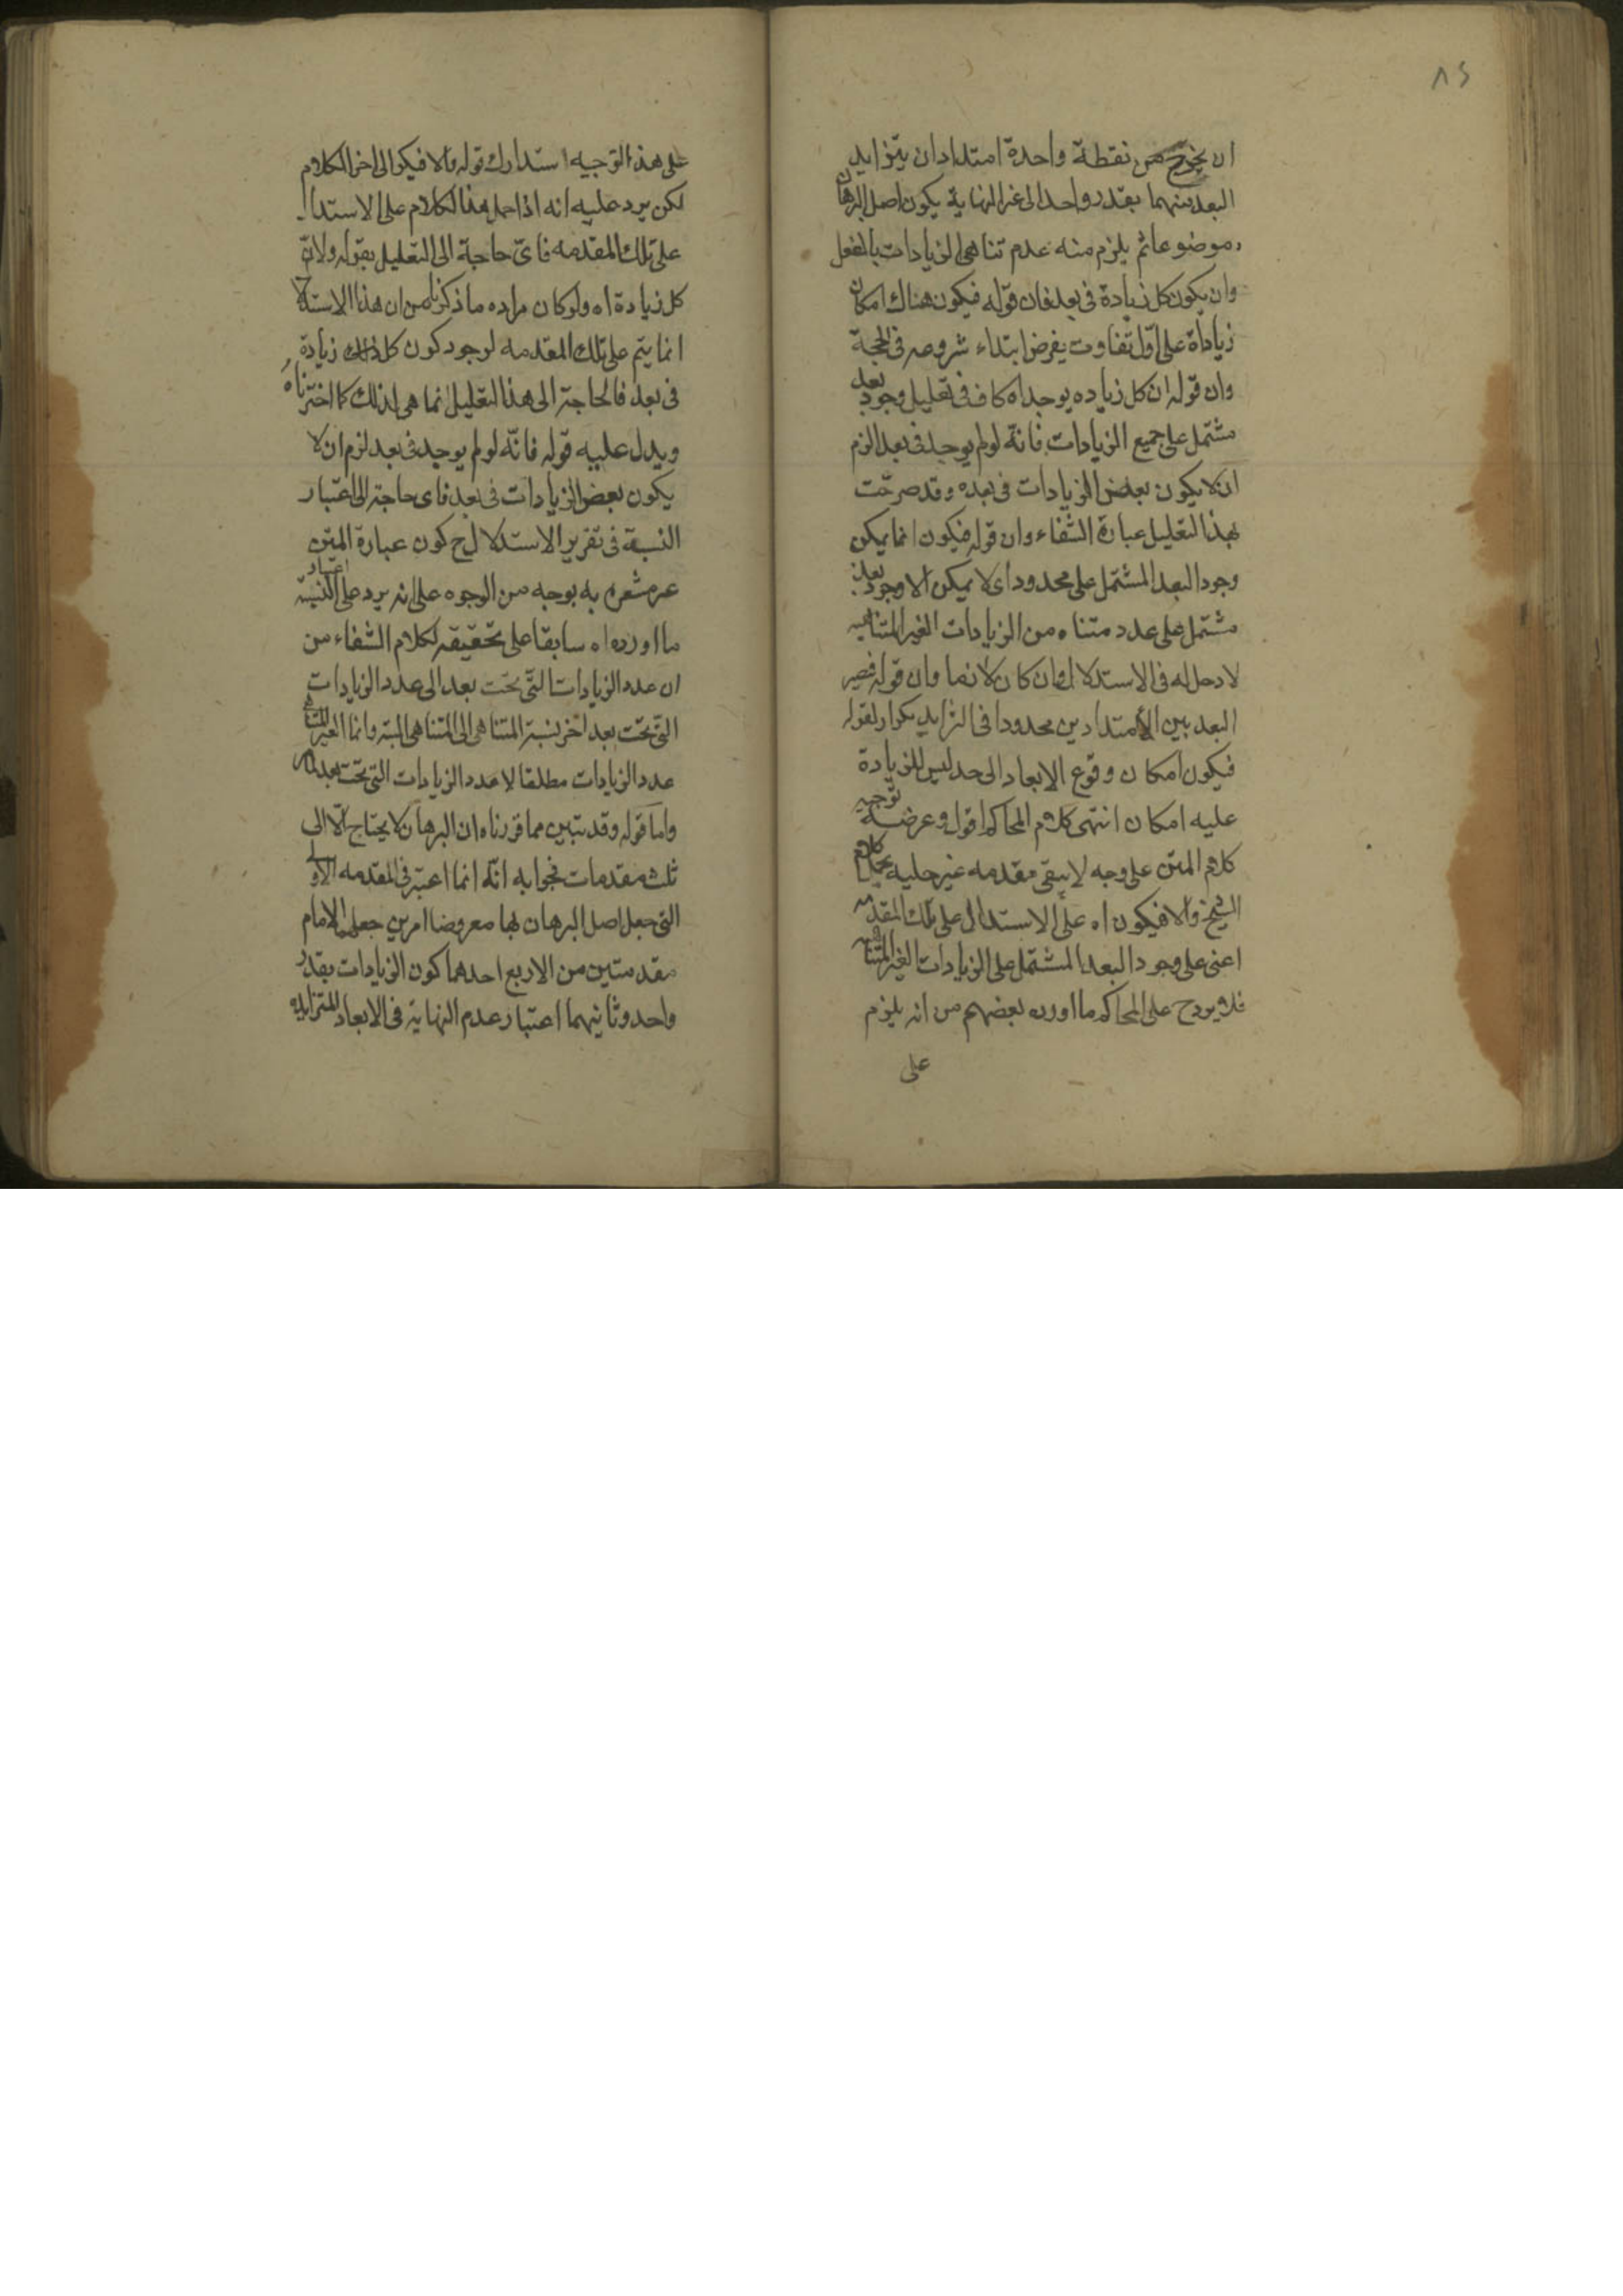 ٨٤
ان يخرج من نقطة واحدة امتدادان يتزايد
البعد بينهما بقدر واحد الى غير النهاية يكون اصل البرهان
موضوعا ثم يلزم منه عدم تناهى الزيادات بالفعل
وان يكون كل زيادة فى بعد فان قوله فيكون هناك امكان
زيادة على اول تفاوت يفرض ابتداء شروعه فى الحجة
وان قوله ان كل زياده يوجد اه كاف فى تعليل وجود بعد
مشتمل على جميع الزيادات فانه لو لم يوجد فى بعد لزم
ان لا يكون بعض الزيادات فى بعده وقد صرحت
بهذا التعليل عبارة الشفاء وان قوله فيكون انما يمكن
وجود البعد المشتمل على محدود اى لا يمكن الا وجود بعد
مشتمل على عدد متناه من الزيادات الغير المتناهيه
لا دخل له فى الاستدلال وان كان لازما وان قوله فيصير
البعد بين الامتدادين محدودا فى التزايد تكرار لقوله
فيكون امكان وقوع الابعاد الى حد ليس للزيادة
عليه امكان انتهى كلام المحاكم اقول وعرضه توجيه
كلام المتن على وجه لا يبقى مقدمه غير جليه بحمل كلام
الشيخ والا فيكون اه على الاستدلال على تلك المقدمه
اعنى على وجود البعد المشتمل على الزيادات الغير المتناهيه
فلا يرد ح على المحاكم ما اورده بعضهم من انه يلزم
على
على هذا التوجيه استدراك قوله والا فيكون الى اخر الكلام
لكن يرد عليه انه اذا حمل هذا الكلام على الاستدلال
على تلك المقدمه فاى حاجة الى التعليل بقوله ولان
كل زيادة اه ولو كان مراده ما ذكرنا من ان هذا الاستدلال
انما يتم على تلك المقدمه لوجود كون كل ذلك زيادة
فى بعد فالحاجة الى هذا التعليل انما هى لذلك كما اخترناه
ويدل عليه قوله فانه لو لم يوجد فى بعد لزم ان لا
يكون بعض الزيادات فى بعد فاى حاجة الى اعتبار
النسبة فى تقرير الاستدلال ح كون عبارة المتن
غير مشعره به بوجه من الوجوه على انه يرد على اعتبار النسبة
ما اورده اه سابقا على تحقيقه لكلام الشفاء من
ان عدد الزيادات التى تحت بعد الى عدد الزيادات
التى تحت بعد اخر نسبة المتناهى الى المتناهى البتة وانما الغير المتناهى
عدد الزيادات مطلقا لا عدد الزيادات التى تحت بعد
واما قوله وقد تبين مما قررناه ان البرهان لا يحتاج الا الى
ثلث مقدمات فجوابه انه انما اعتبر فى المقدمه الاولى
التى جعل اصل البرهان لها معروضا امرين جعلهما الامام
مقدمتين من الاربع احدهما كون الزيادات بقدر
واحد وثانيهما اعتبار عدم النهاية فى الابعاد المتزايده